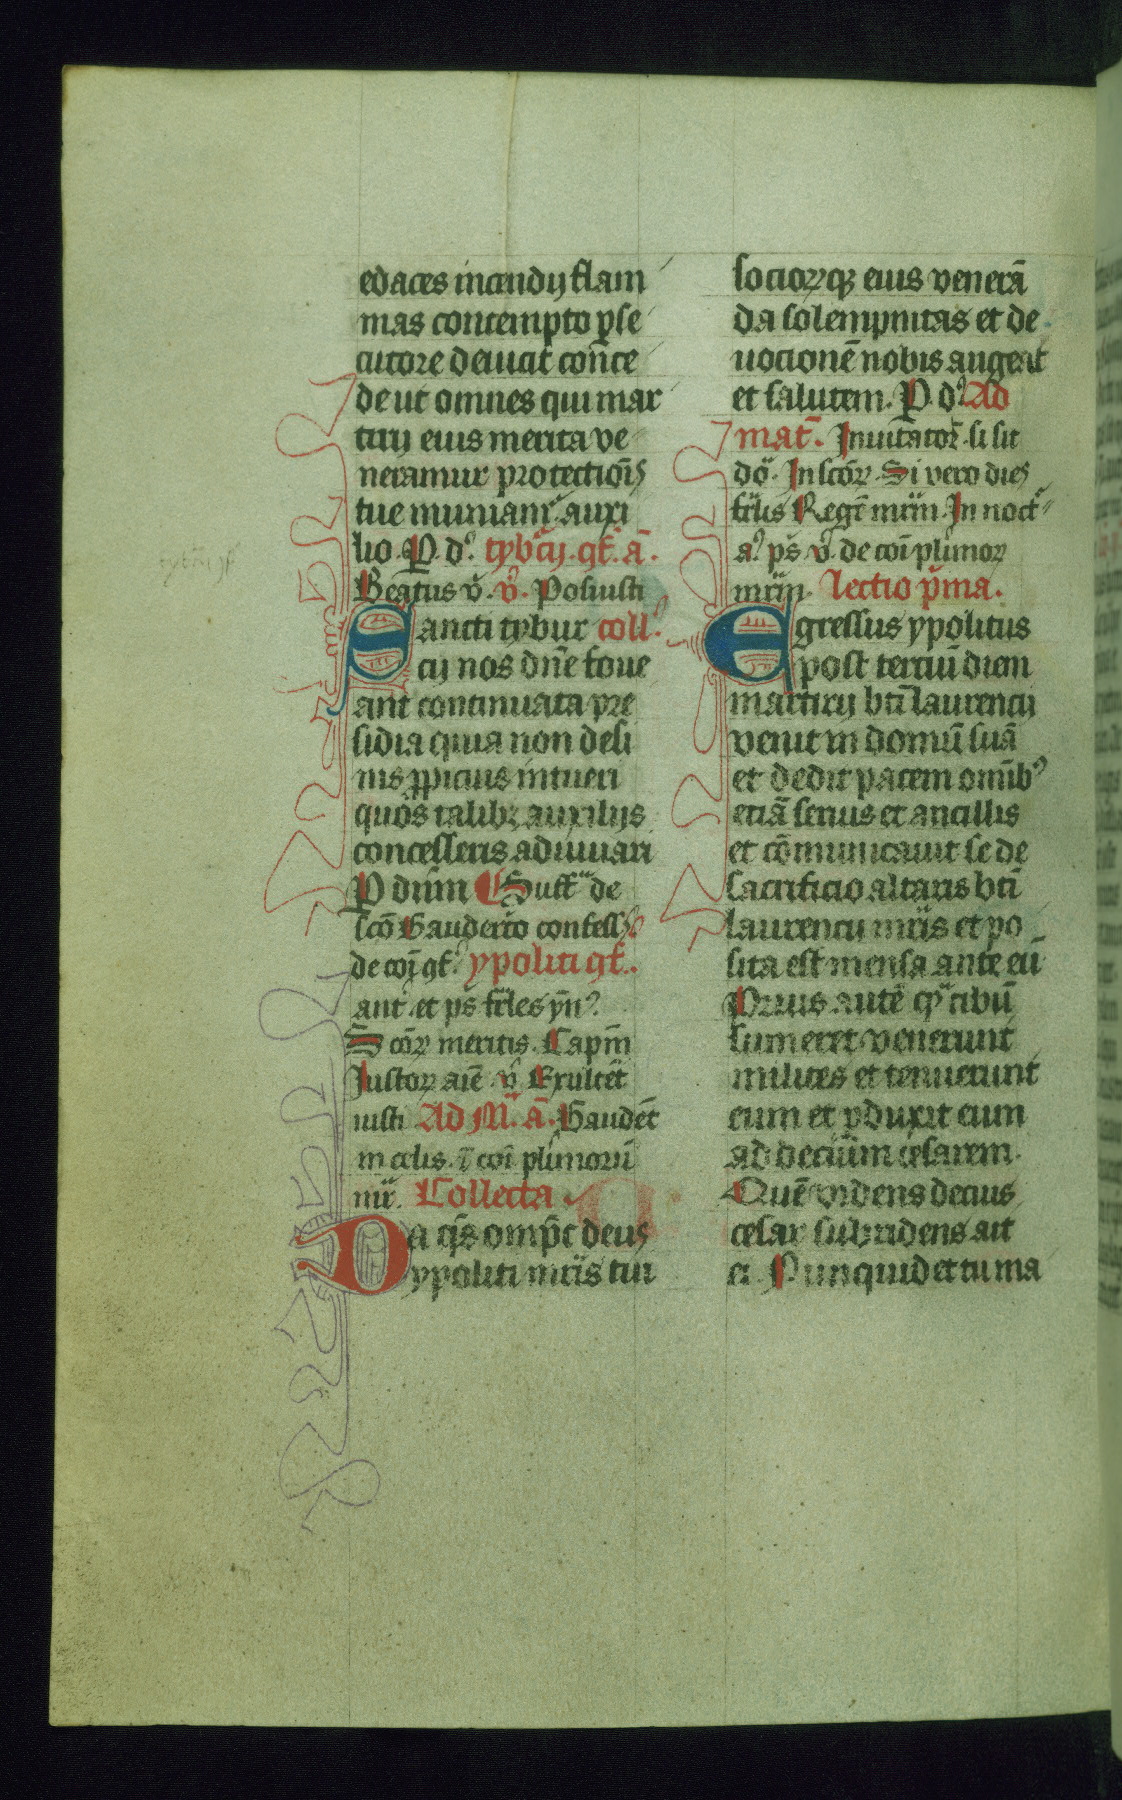 edaces incendij flam
mas contempto ꝑse
cutore deuicit conce
de ut omnes qui mar
tirij eius merita ve
neramur protectiōis
tue muniamʳ auxi
lio P. dº. tyb᷑cij. gf. ā.
Beatus v̄. v̄. Posuisti
Sancti tybur coll.
cij nos dn̄e foue
ant continuata pre
sidia quia non desi
nis ꝓpicius intueri
quos talibꝫ auxilijs
concesseris adiuuari
P dn̄m Suff. de
scō Gauderico confess.
de cōi gf. ypoliti gf.
ant. et ps̄ fēles yn̄.
Scōꝝ meritis. Capm̄
Iustoꝝ aīe v̄ Exultēt
iusti Ad M. ā. Gaudēt
in celis. ī cōi plimorū
mr̄. Collecta
Da qs̄ omp̄c deus
ypoliti mr̄is tui
socioꝝqꝫ eius venerā
da solempnitas et de
uocionē nobis augeat
et salutem. P. dº. Ad
mat̄. Inuitatoꝝ. si sit
dō. In scōꝝ. Si vero dies
fēlis Regē mr̄m. In noct
aº. ps̄ v̄. de cōi plimoꝝ
mr̄m. lectio p̄ma.
Egressus ypolitus
post terciū diem
martirij bt̄i laurencij
venit in domū suā
et dedit pacem omībꝰ
eciā seruis et ancillis
et cōmunicauit se de
sacrificio altaris bt̄i
laurencij mr̄is et po
sita est mensa ante eū
Prius autē qᷓ cibū
sumeret venerunt
milites et tenuerunt
eum et ꝑduxit eum
ad decium cesarem.
Quē videns decius
cesar subridens ait
ei. Nunquid et tu ma